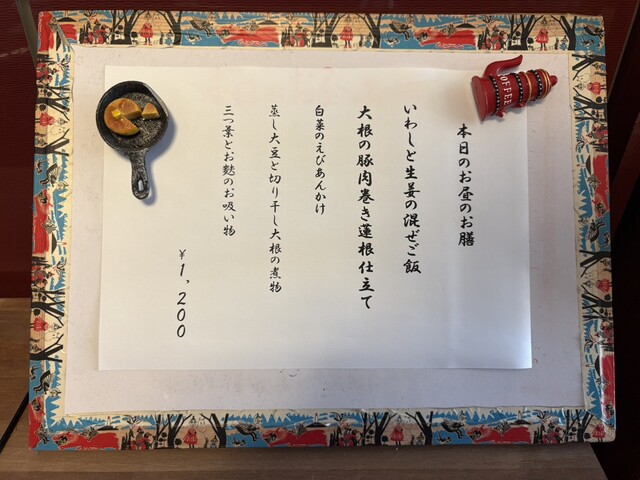 本日のお昼のお膳
いわしと生姜の混ぜご飯
大根の豚肉巻き蓮根仕立て
白菜のえびあんかけ
蒸し大豆と切り干し大根の煮物
三つ葉とお麩のお吸い物
¥1,200
COFFEE